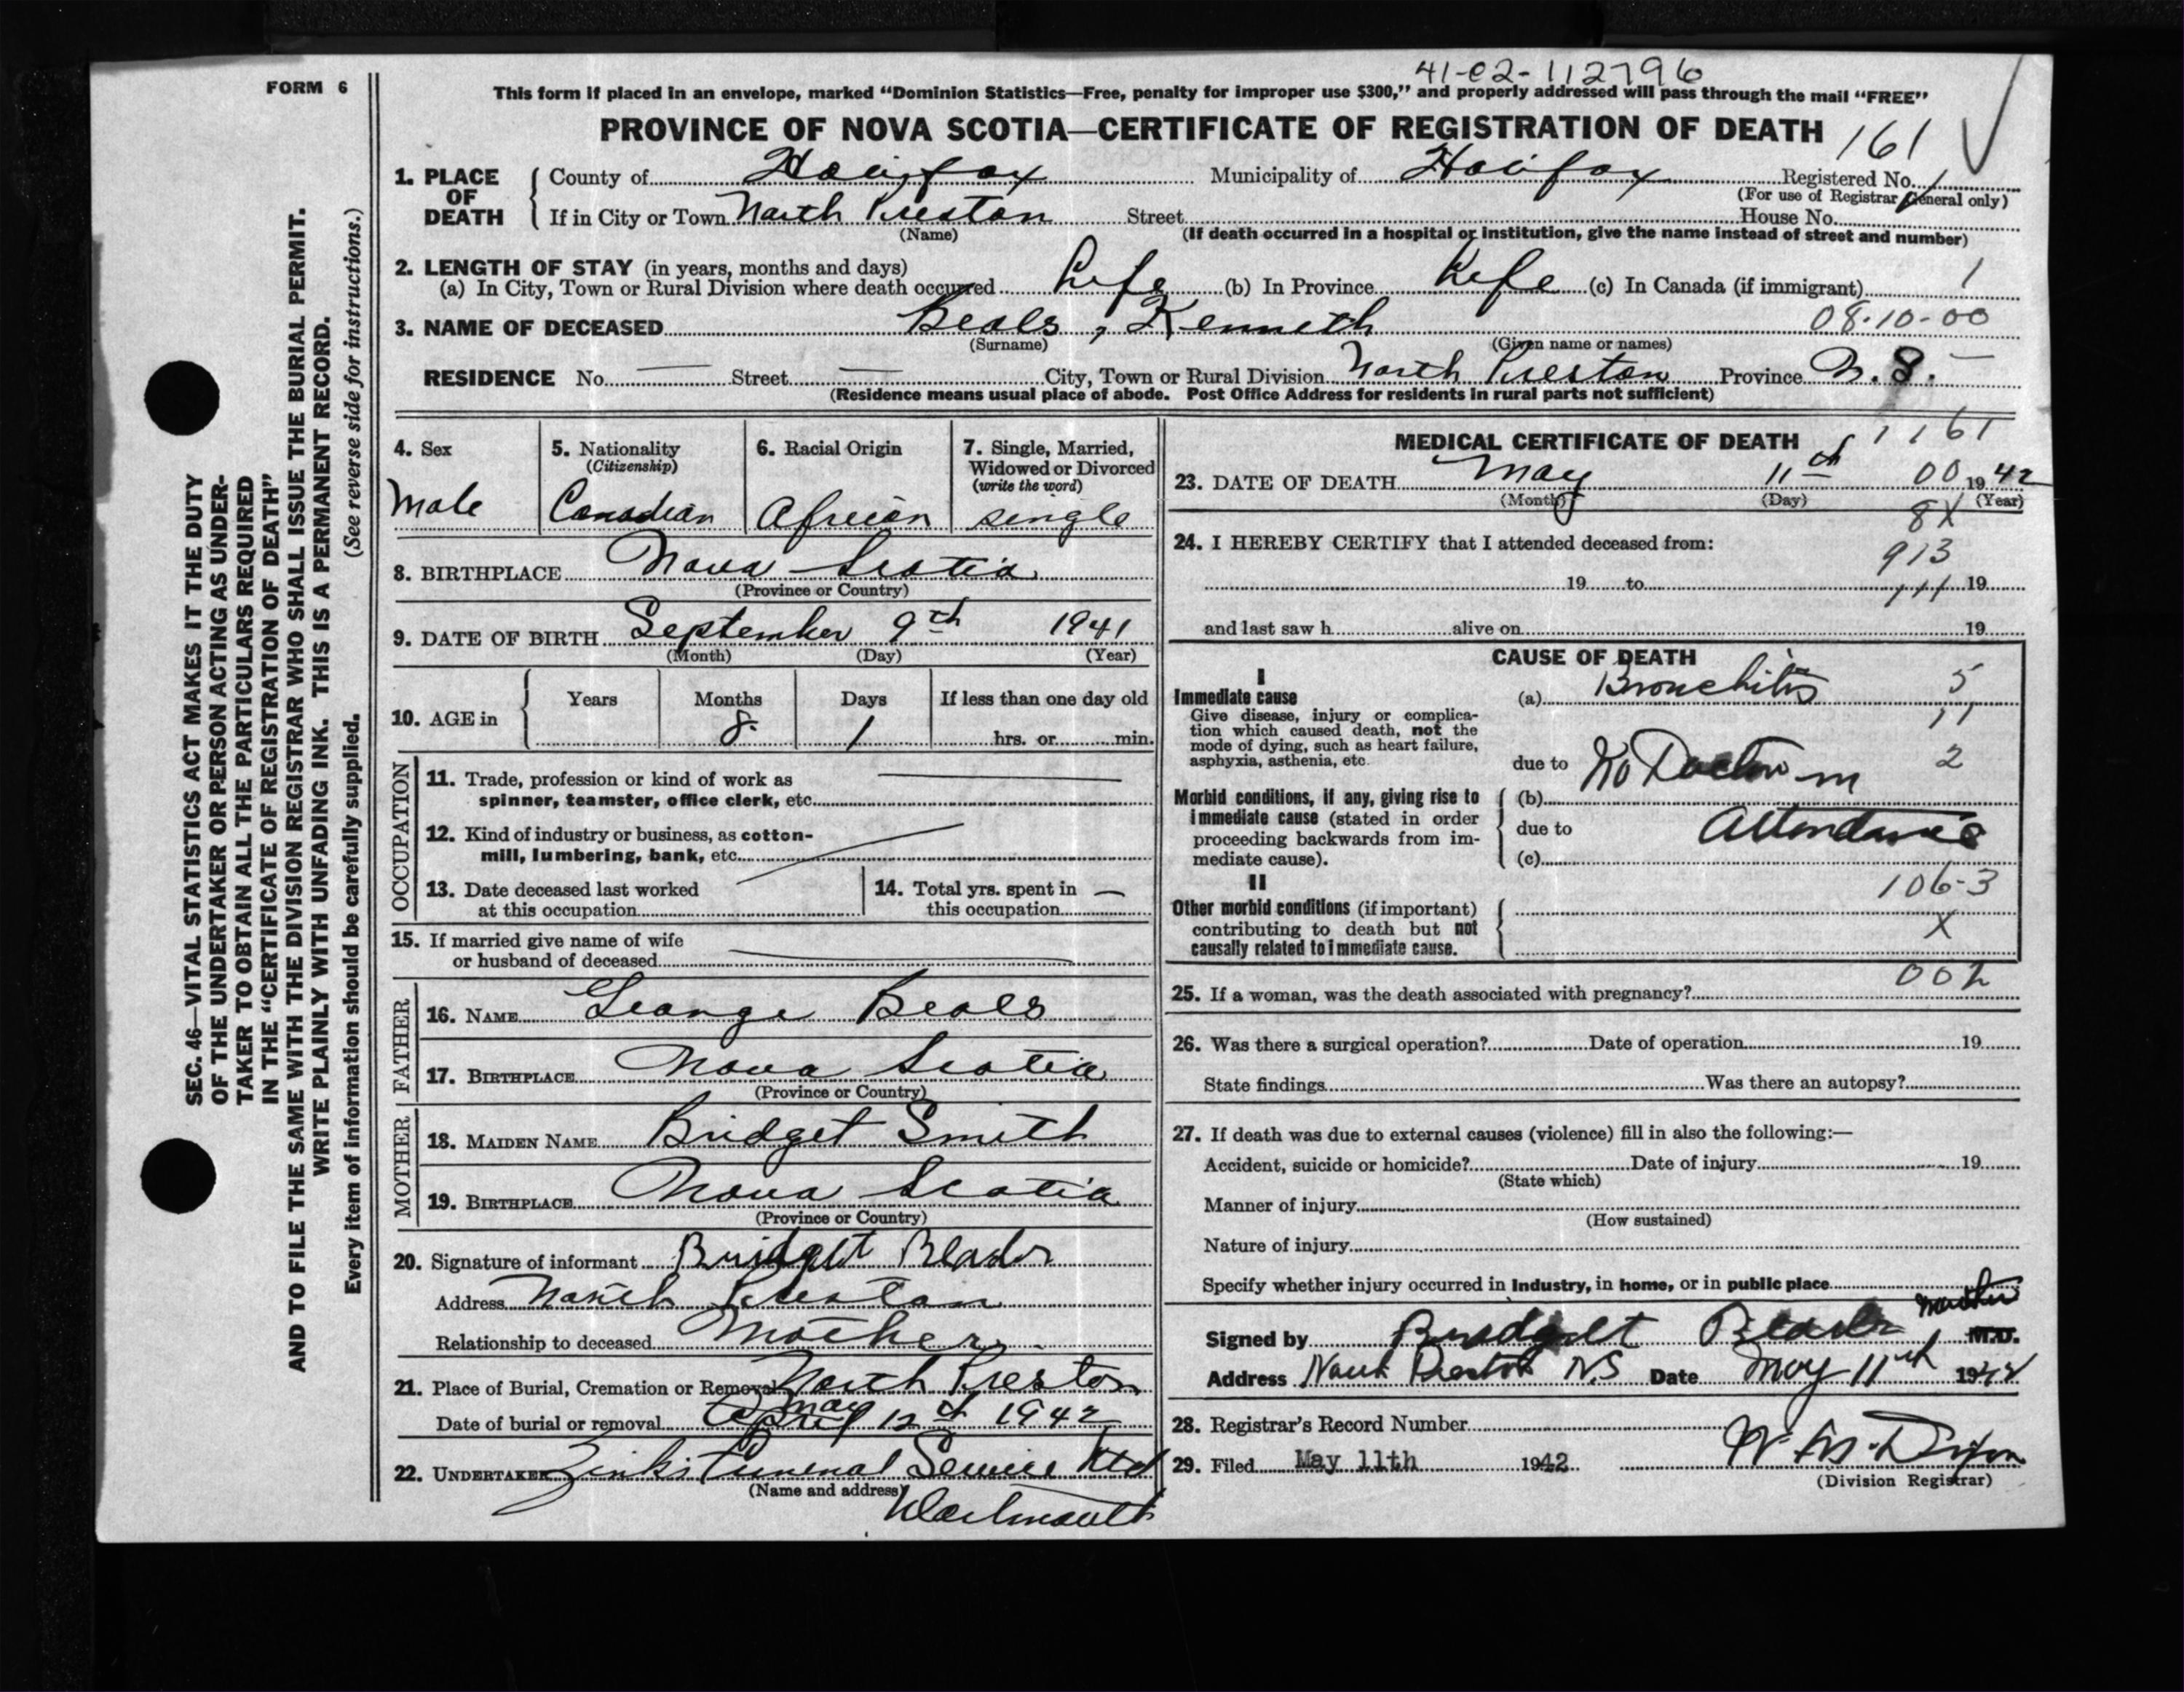 FORM 6
41-02-112796
This form if placed in an envelope, marked “Dominion Statistics—Free, penalty for improper use $300,” and properly addressed will pass through the mail “FREE”
PROVINCE OF NOVA SCOTIA—CERTIFICATE OF REGISTRATION OF DEATH
161
1. PLACE OF DEATH
County of Halifax Municipality of Halifax Registered No.
(For use of Registrar General only)
If in City or Town North Preston Street House No.
(Name) (If death occurred in a hospital or institution, give the name instead of street and number)
2. LENGTH OF STAY (in years, months and days)
(a) In City, Town or Rural Division where death occurred Life (b) In Province Life (c) In Canada (if immigrant) 1
3. NAME OF DECEASED Beals, Kenneth 08-10-00
(Surname) (Given name or names)
RESIDENCE No. — Street — City, Town or Rural Division North Preston Province N.S.
(Residence means usual place of abode. Post Office Address for residents in rural parts not sufficient)
4. Sex
Male
5. Nationality
(Citizenship)
Canadian
6. Racial Origin
African
7. Single, Married,
Widowed or Divorced
(write the word)
single
8. BIRTHPLACE Nova Scotia
(Province or Country)
9. DATE OF BIRTH September 9th 1941
(Month) (Day) (Year)
10. AGE in
Years Months Days If less than one day old
8 1 hrs. or min.
OCCUPATION
11. Trade, profession or kind of work as
spinner, teamster, office clerk, etc.
12. Kind of industry or business, as cotton-
mill, lumbering, bank, etc.
13. Date deceased last worked
at this occupation
14. Total yrs. spent in —
this occupation
15. If married give name of wife
or husband of deceased
FATHER
16. NAME George Beals
17. BIRTHPLACE Nova Scotia
(Province or Country)
MOTHER
18. MAIDEN NAME Bridget Smith
19. BIRTHPLACE Nova Scotia
(Province or Country)
20. Signature of informant Bridget
Address North Preston
Relationship to deceased Mother
21. Place of Burial, Cremation or Removal North Preston
Date of burial or removal April May 12th 1942
22. UNDERTAKER Zinks Funeral Service Ltd
(Name and address)
Dartmouth
MEDICAL CERTIFICATE OF DEATH
1161
23. DATE OF DEATH May 11th 00 1942
(Month) (Day) (Year)
8X
24. I HEREBY CERTIFY that I attended deceased from:
913
19 to 111 19
and last saw h alive on 19
CAUSE OF DEATH
I
Immediate cause
Give disease, injury or complica-
tion which caused death, not the
mode of dying, such as heart failure,
asphyxia, asthenia, etc.
(a) Bronchitis 5
11
due to No Doctor in 2
Morbid conditions, if any, giving rise to
immediate cause (stated in order
proceeding backwards from im-
mediate cause).
(b)
due to Attendance
(c)
106-3
II
Other morbid conditions (if important)
contributing to death but not
causally related to immediate cause.
X
002
25. If a woman, was the death associated with pregnancy?
26. Was there a surgical operation? Date of operation 19
State findings Was there an autopsy?
27. If death was due to external causes (violence) fill in also the following:—
Accident, suicide or homicide? Date of injury 19
(State which)
Manner of injury
(How sustained)
Nature of injury
Specify whether injury occurred in Industry, in home, or in public place
Mother
Signed by Bridget M.D.
Address North Preston N.S Date May 11th 1942
28. Registrar's Record Number
29. Filed May 11th 1942
(Division Registrar)
SEC. 46—VITAL STATISTICS ACT MAKES IT THE DUTY
OF THE UNDERTAKER OR PERSON ACTING AS UNDER-
TAKER TO OBTAIN ALL THE PARTICULARS REQUIRED
IN THE “CERTIFICATE OF REGISTRATION OF DEATH”
AND TO FILE THE SAME WITH THE DIVISION REGISTRAR WHO SHALL ISSUE THE BURIAL PERMIT.
WRITE PLAINLY WITH UNFADING INK. THIS IS A PERMANENT RECORD.
Every item of information should be carefully supplied. (See reverse side for instructions.)